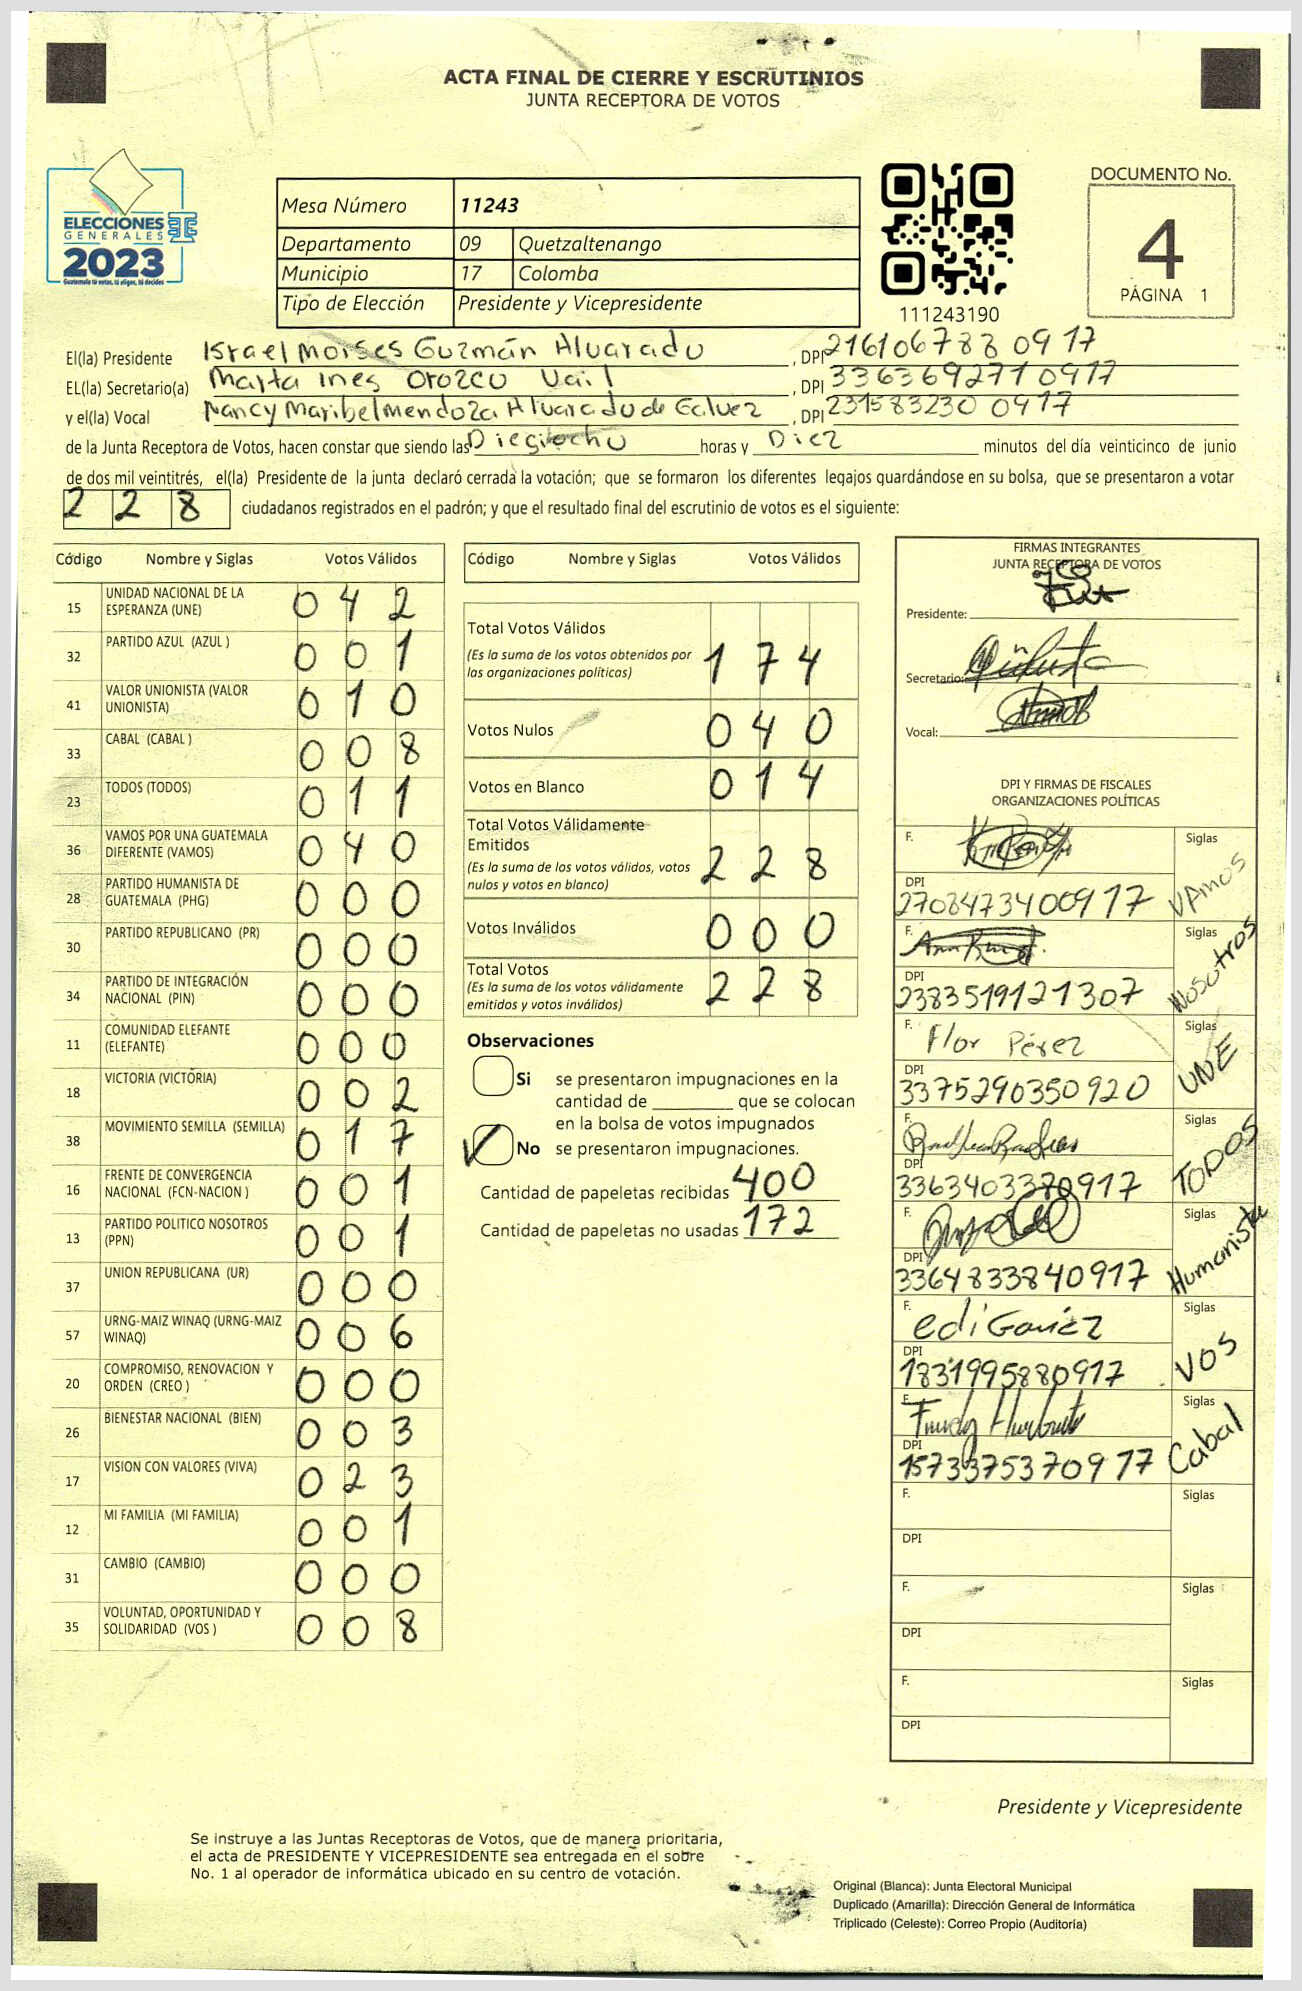 ACTA FINAL DE CIERRE Y ESCRUTINIOS
JUNTA RECEPTORA DE VOTOS
ELECCIONES
GENERALES
2023
Guatemala tú votas, tú eliges, tú decides
Mesa Número 11243
Departamento 09 Quetzaltenango
Municipio 17 Colomba
Tipo de Elección Presidente y Vicepresidente
111243190
DOCUMENTO No.
4
PÁGINA 1
El(la) Presidente Israel Moises Guzmán Alvarado, DPI 216106788 0917
EL(la) Secretario(a) Marta Ines Orozco Vail, DPI 336369271 0917
y el(la) Vocal Nancy Maribel Mendoza Alvarado de Galvez, DPI 231583230 0917
de la Junta Receptora de Votos, hacen constar que siendo las Dieciocho horas y Diez minutos del día veinticinco de junio
de dos mil veintitrés, el(la) Presidente de la junta declaró cerrada la votación; que se formaron los diferentes legajos guardándose en su bolsa, que se presentaron a votar
228 ciudadanos registrados en el padrón; y que el resultado final del escrutinio de votos es el siguiente:
Código Nombre y Siglas Votos Válidos
15 UNIDAD NACIONAL DE LA ESPERANZA (UNE) 042
32 PARTIDO AZUL (AZUL ) 001
41 VALOR UNIONISTA (VALOR UNIONISTA) 010
33 CABAL (CABAL ) 008
23 TODOS (TODOS) 011
36 VAMOS POR UNA GUATEMALA DIFERENTE (VAMOS) 040
28 PARTIDO HUMANISTA DE GUATEMALA (PHG) 000
30 PARTIDO REPUBLICANO (PR) 000
34 PARTIDO DE INTEGRACIÓN NACIONAL (PIN) 000
11 COMUNIDAD ELEFANTE (ELEFANTE) 000
18 VICTORIA (VICTORIA) 002
38 MOVIMIENTO SEMILLA (SEMILLA) 017
16 FRENTE DE CONVERGENCIA NACIONAL (FCN-NACION ) 001
13 PARTIDO POLITICO NOSOTROS (PPN) 001
37 UNION REPUBLICANA (UR) 000
57 URNG-MAIZ WINAQ (URNG-MAIZ WINAQ) 006
20 COMPROMISO, RENOVACION Y ORDEN (CREO ) 000
26 BIENESTAR NACIONAL (BIEN) 003
17 VISION CON VALORES (VIVA) 023
12 MI FAMILIA (MI FAMILIA) 001
31 CAMBIO (CAMBIO) 000
35 VOLUNTAD, OPORTUNIDAD Y SOLIDARIDAD (VOS ) 008
Código Nombre y Siglas Votos Válidos
Total Votos Válidos 174
(Es la suma de los votos obtenidos por
las organizaciones políticas)
Votos Nulos 040
Votos en Blanco 014
Total Votos Válidamente
Emitidos 228
(Es la suma de los votos válidos, votos
nulos y votos en blanco)
Votos Inválidos 000
Total Votos 228
(Es la suma de los votos válidamente
emitidos y votos inválidos)
Observaciones
Si se presentaron impugnaciones en la
cantidad de ________ que se colocan
en la bolsa de votos impugnados
No se presentaron impugnaciones.
Cantidad de papeletas recibidas 400
Cantidad de papeletas no usadas 172
FIRMAS INTEGRANTES
JUNTA RECEPTORA DE VOTOS
Presidente:
Secretario:
Vocal:
DPI Y FIRMAS DE FISCALES
ORGANIZACIONES POLÍTICAS
F. Siglas VAMOS
DPI 2708473400917
F. Siglas Nosotros
DPI 2383519121307
F. Flor Pérez Siglas UNE
DPI 3375290350920
F. Siglas TODOS
DPI 3363403370917
F. Siglas Humanista
DPI 3364833840917
F. Siglas VOS
DPI 1831995880917
F. Siglas Cabal
DPI 1573375370917
F. Siglas
DPI
F. Siglas
DPI
F. Siglas
DPI
Presidente y Vicepresidente
Se instruye a las Juntas Receptoras de Votos, que de manera prioritaria,
el acta de PRESIDENTE Y VICEPRESIDENTE sea entregada en el sobre
No. 1 al operador de informática ubicado en su centro de votación.
Original (Blanca): Junta Electoral Municipal
Duplicado (Amarilla): Dirección General de Informática
Triplicado (Celeste): Correo Propio (Auditoría)